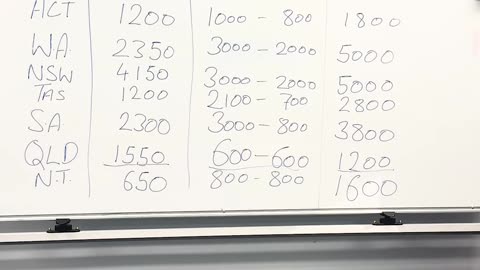 ACT 1200 1000 - 800 1800
WA 2350 3000 - 2000 5000
NSW 4150 3000 - 2000 5000
TAS 1200 2100 - 700 2800
SA 2300 3000 - 800 3800
QLD 1550 600 - 600 1200
N.T. 650 800 - 800 1600